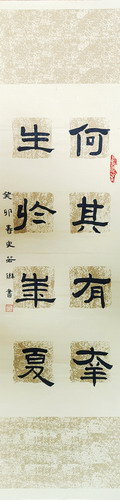 何其有幸
生於華夏
癸卯春史 書